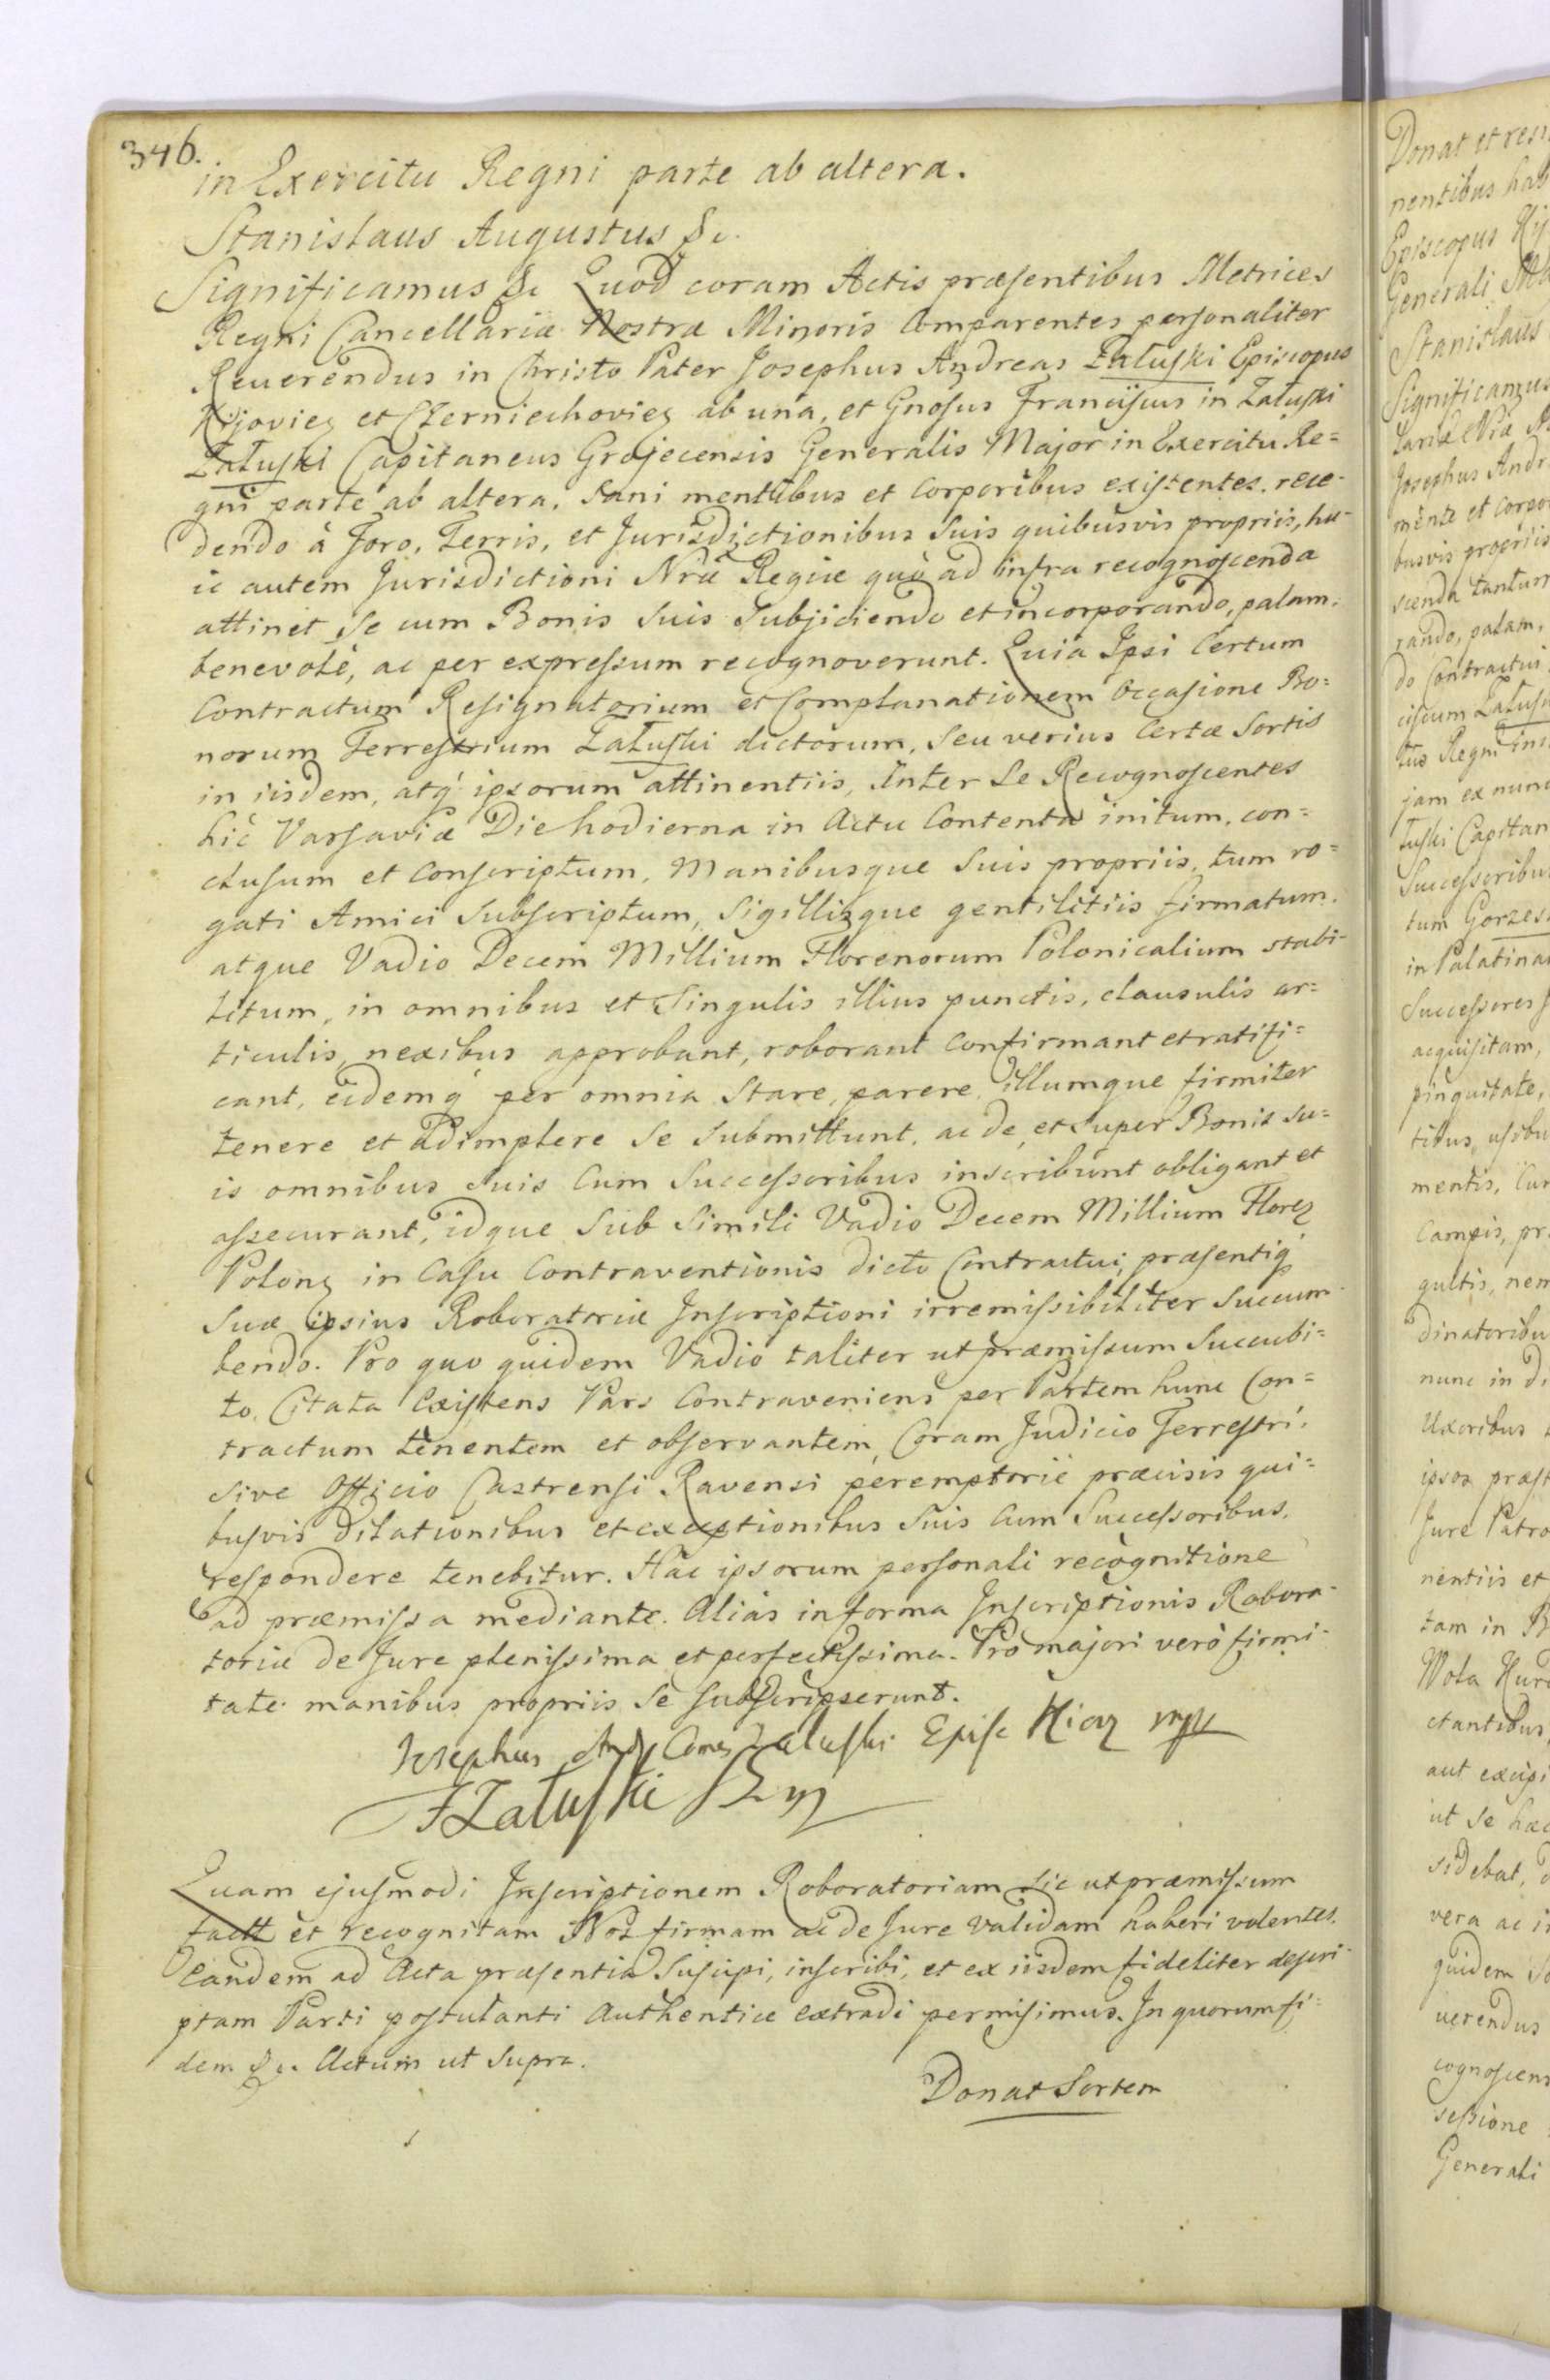 346.
in Exercitu Regni parte ab altera.
Stanislaus Augustus &c.
Significamus &c Quod coram Actis præsentibus Metrices
Regni Cancellariæ Nostræ Minoris Comparentes personaliter
Reverendus in Christo Pater Josephus Andreas Załuski Episcopus
Kijovien et Czerniechovien ab una, et Gnosus Franciscus in Załuski
Załuski Capitaneus Grojecensis Generalis Major in Exercitu Re=
gni parte ab altera, Sani mentibus et Corporibus existentes, rece-
dendo à Foro, Terris, et Jurisdictionibus Suis quibusvis propriis, hu-
ic autem Jurisdictioni Nræ Regiæ quò ad infra recognoscenda
attinet Se cum Bonis Suis Subjiciendo et incorporando, palam,
benevolè, ac per expressum recognoverunt. Quia Ipsi Certum
Contractum Resignatorium et Complanationem Occasione Bo=
norum Terrestrium Załuski dictorum, Seu verius Certæ Sortis
in iisdem, atq́ ipsorum attinentiis, Inter Se Recognoscentes
hic Varsaviæ Die hodierna in Actu Contenta initum, con=
clusum et Conscriptum, Manibusque Suis propriis, tum ro=
gati Amici Subscriptum, Sigillisque gentilitiis firmatum.
atque Vadio Decem Millium Florenorum Polonicalium stabi-
litum, in omnibus et Singulis illius punctis, clausulis ar=
ticulis, nexibus approbant, roborant Confirmant et ratifi=
cant, eidemq́ per omnia Stare, parere illumque firmiter
tenere et adimplere Se Submittunt, ac de, et Super Bonis Su=
is omnibus Suis Cum Successoribus inscribunt obligant et
assecurant, idque Sub Simili Vadio Decem Millium Floren
Polon in Casu Contraventionis dicto Contractui, præsentiq́
Suæ ipsius Roboratoriæ Inscriptioni irremissibiliter Succum-
bendo. Pro quo quidem Vadio taliter ut præmissum Succubi=
to, Citata Existens Pars Contraveniens per Partem hunc Con=
tractum tenentem et observantem, Coram Judicio Terrestri,
sive Officio Castrensi Ravensi peremptoriè præcisis qui=
busvis Dilationibus et exceptionibus Suis Cum Successoribus,
respondere tenebitur. Hac ipsorum personali recognitione
ad præmissa mediante. Aliàs in forma Inscriptionis Robora-
toriæ de Jure plenissima et perfectissima. Pro majori verò firmi-
tate manibus propriis Se Subscripserunt.
Josephus And. Comes Zaluski Episc Kiov mpp
FZałuski SG m
Quam ejusmodi Inscriptionem Roboratoriam sic ut præmissum
fact et recognitam Nos firmam ac de Jure validam haberi volentes.
Eandem ad Acta præsentia Suscipi, inscribi, et ex iisdem fideliter descri-
ptam Parti postulanti Authentice extradi permisimus. In quorum fi=
dem &c. Actum ut Supra.
Donat Sortem
Donat et resi
nentibus hab
Episcopus Kij
Generali Ma
Stanislaus
Significamus
lariæ Nræ
Josephus Andr
mente et Corpo
busvis propriis
scenda tantum
rando, palam,
do Contractui
ciscum Załusk
tus Regni
jam ex nunc
łuski Capitan
Successoribu
tum Gorzes
in Palatina
Successores
acquisitam,
pinguitate,
tibus, usibu
mentis, Cur
Campis, pr
gultis, nem
dinatoribu
nunc in d
Uxoribus
ipsos præst
Jure Patro
nentiis et
tam in B
Wola Kur
ctantibus,
aut excipi
ut Se hæc
sidebat,
vera ac i
quidem So
verendus
cognoscens
sessione
Generali